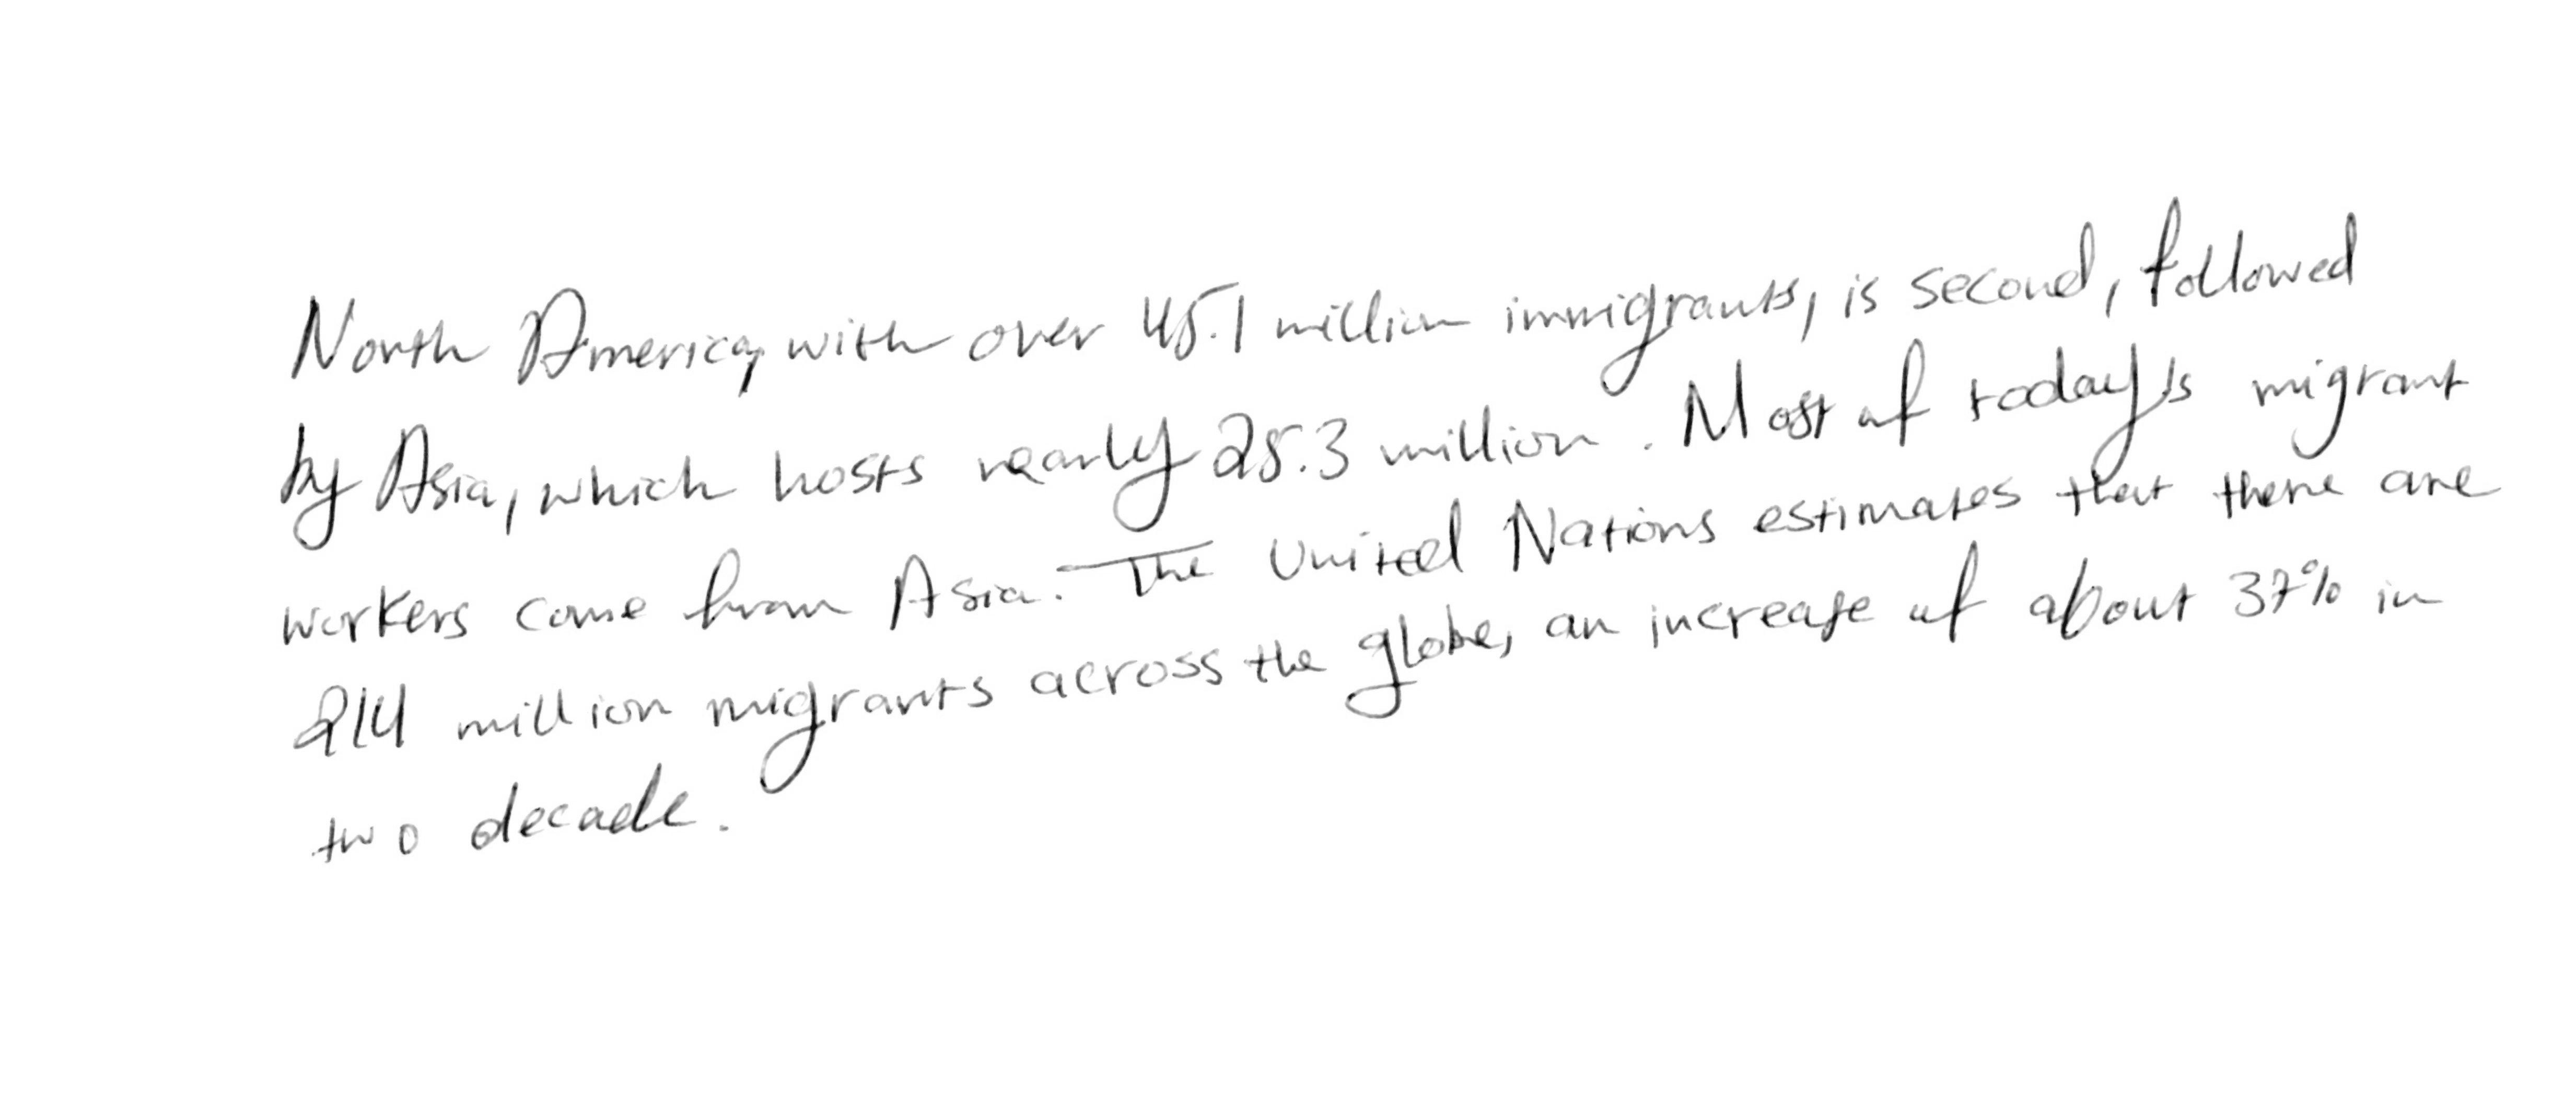 North America, with over 45.1 million immigrants, is second, followed
by Asia, which hosts nearly 25.3 million. Most of today's migrant
workers come from Asia. The United Nations estimates that there are
214 million migrants across the globe, an increase of about 37% in
two decade.